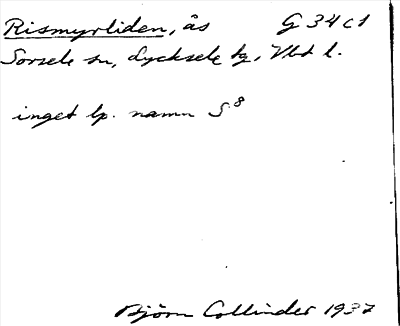 Rismyrliden, ås G 34 c 1
Sorsele sn, Lycksele tg, Vbt l.
inget lp. namn S⁸
Björn Collinder 1937